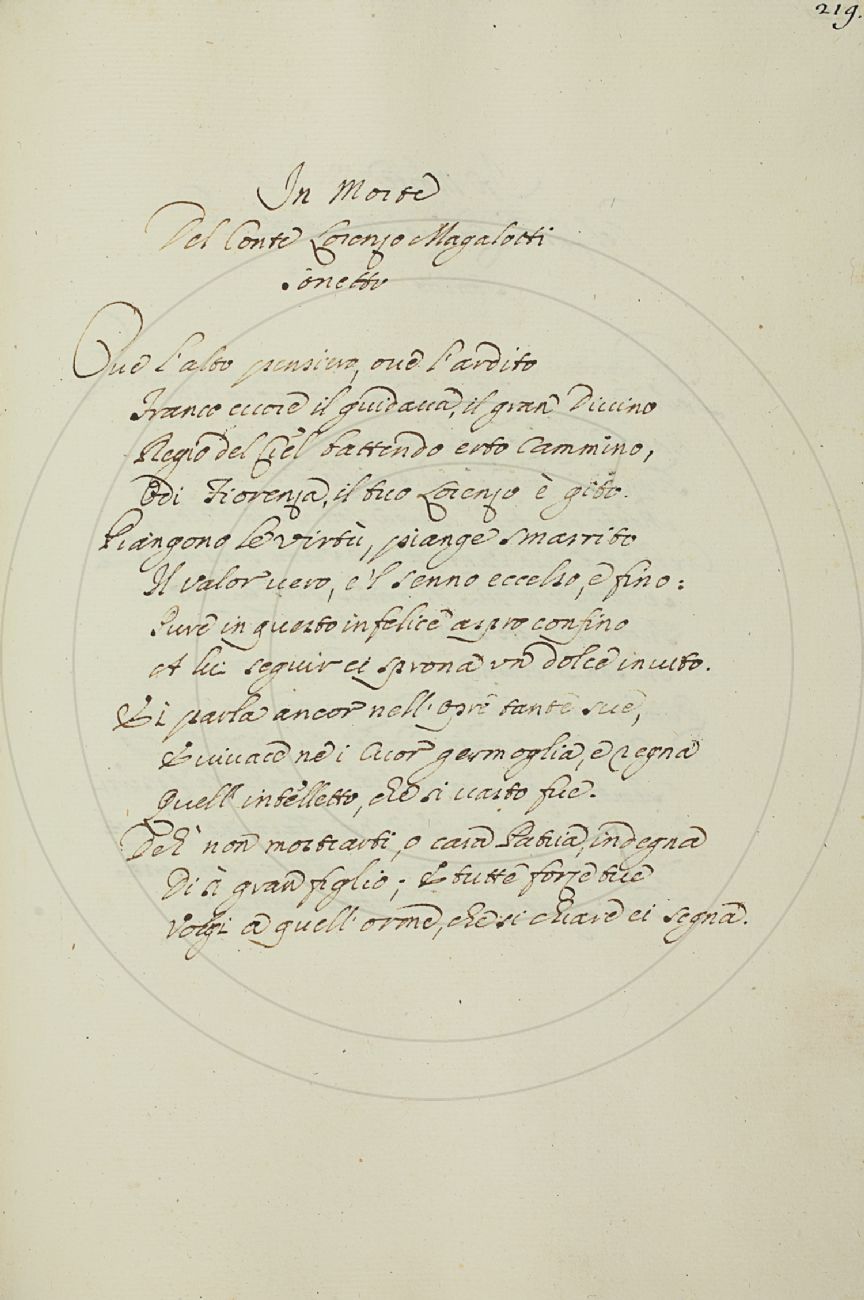 219.
In Morte
Del Conte Lorenzo Magalotti
Sonetto
Oue l'alto pensiero, oue l'ardito
Franco cuore il guidaua, il gran Diuino
Regio del Ciel battendo erto Cammino,
Odi Fiorenza, il tuo Lorenzo è gito.
Piangono le virtù, piange smarrito
Il valor uero, e 'l senno eccelso, e fino:
Pure in questo infelice aspro confino
A lui seguir ci sprona vn dolce inuito.
Ei parla ancor nell' Opre tante sue,
E viuace ne i Cuor germoglia, e regna
Quell' intelletto, che sì uasto fue.
Deh non mostrarti, o cara Patria, indegna
Di sì gran figlio; E tutte forze tue
Volgi a quell' orme, che sì chiare ei segna.